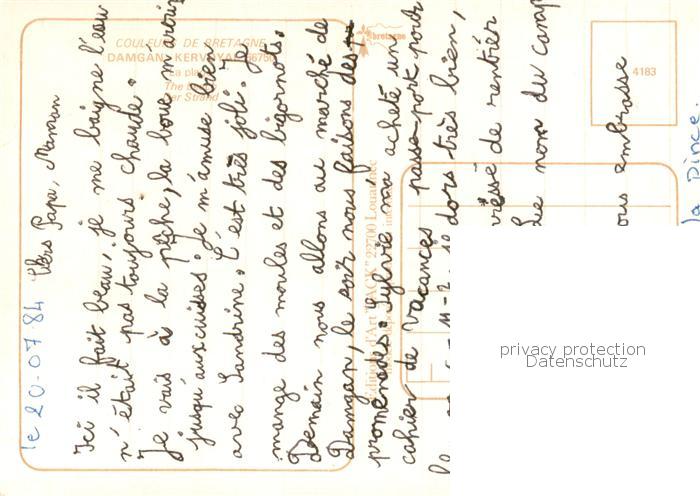 le 20.07.84
Chers Papa, Maman
Ici il fait beau, je me baigne l'eau
n'était pas toujours chaude.
Je vais à la pêche, la boue m'arrivait
jusqu'aux cuisses. Je m'amuse bien
avec Sandrine. C'est très joli. Je
mange des moules et des bigornets.
Demain nous allons au marché de
Damgan, le soir nous faisons des
promenades. Sylvie m'a acheté un
cahier de vacances passe-port pour
la
dors très bien,
de rentrer
Le nom du camp
embrasse
la Dince
COULEURS DE BRETAGNE
DAMGAN - KERVOYAL
La plage
The
Strand
bretagne
4183
Editions d'Art "JACK" 22700 Louannec
privacy protection
Datenschutz